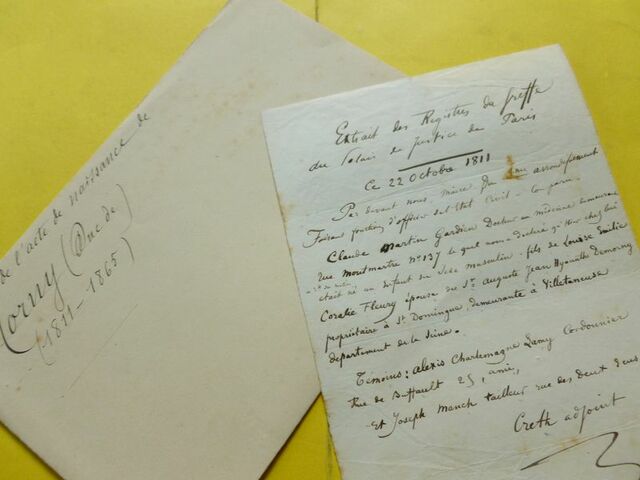 de l'acte de naissance de
Morny (Duc de)
(1811-1865)
Extrait des Registres du greffe
du Palais de Justice de Paris
Ce 22 Octobre 1811
Par devant nous, maire du arrondissement
Faisant fonction d'officier de l'Etat Civil - Comparu
Claude Martin Gardien Docteur en médecine demeurant
rue Montmartre n° 137 lequel nous a déclaré qu'hier chez lui
était né un enfant du Sexe masculin - fils de Louise Emilie
Coralie Fleury épouse du Sr Auguste Jean Hyacinthe Demorny
propriétaire à St Domingue, demeurante à Villetaneuse
département de la Seine.
Témoins: Alexis Charlemagne Lamy Cordonnier
Rue de Buffault 25, ami,
Et Joseph Manch tailleur rue des deux Ecus
Creth adjoint